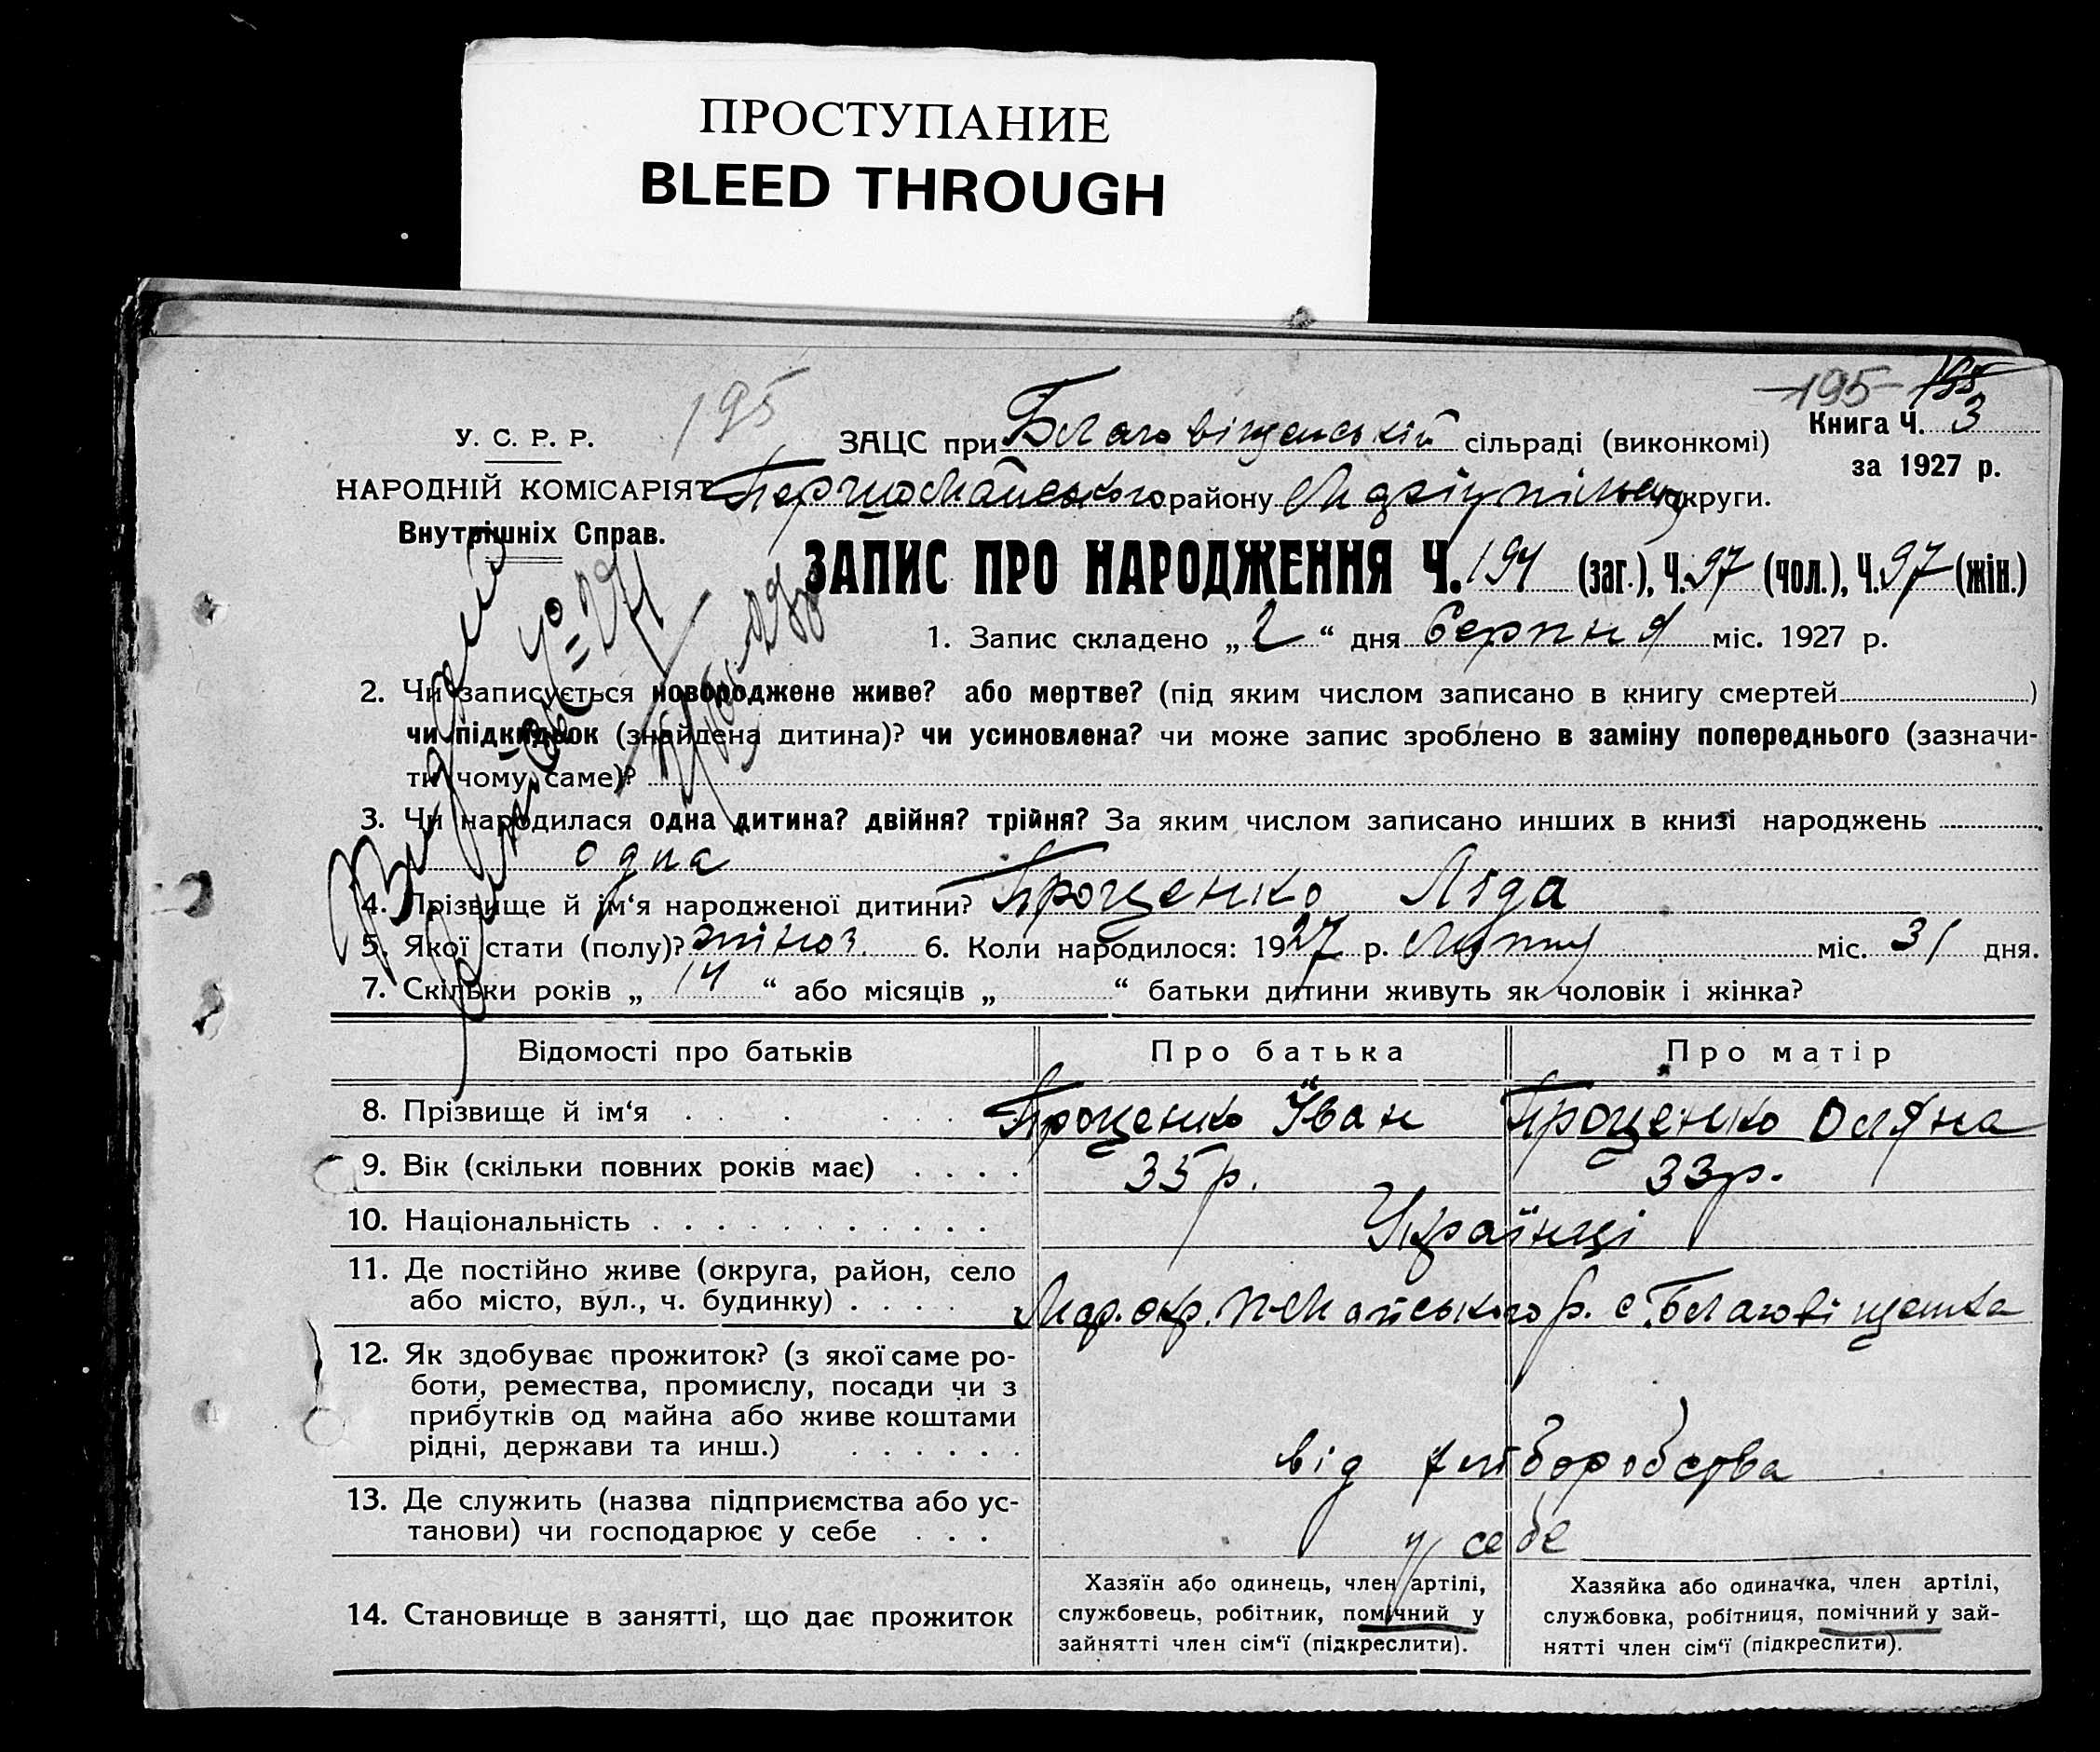 ПРОСТУПАНИЕ
BLEED THROUGH
195
-195- 195
У. С. Р. Р.
ЗАЦС при Благовіщенській сільраді (виконкомі)
Книга Ч. 3
за 1927 р.
НАРОДНІЙ КОМІСАРІЯТ
Першомайського району Маріупільсь округи.
Внутрішніх Справ.
ЗАПИС ПРО НАРОДЖЕННЯ Ч. 194 (заг.), Ч. 97 (чол.), Ч. 97 (жін.)
1. Запис складено „ 2 “ дня Серпня міс. 1927 р.
2. Чи записується новороджене живе? або мертве? (під яким числом записано в книгу смертей )
чи підкидьок (знайдена дитина)? чи усиновлена? чи може запис зроблено в заміну попереднього (зазначи-
ти чому саме)?
3. Чи народилася одна дитина? двійня? трійня? За яким числом записано инших в книзі народжень
одна
4. Прізвище й ім‘я народженої дитини? Проценко Ліда
5. Якої стати (полу)? жіноч. 6. Коли народилося: 1927 р. Липня міс. 31 дня.
7. Скільки років „ 14 “ або місяців „ “ батьки дитини живуть як чоловік і жінка?
Відомості про батьків Про батька Про матір
8. Прізвище й ім‘я . . . . . Проценко Іван Проценко Оляна
9. Вік (скільки повних років має) . . . . 35 р. 33 р.
10. Національність . . . . . . . . . . . Українці
11. Де постійно живе (округа, район, село
або місто, вул., ч. будинку) . . . . Мар. окр. П-Майського р. с. Благовіщенка
12. Як здобуває прожиток? (з якої саме ро-
боти, ремества, промислу, посади чи з
прибутків од майна або живе коштами
рідні, держави та инш.) . . . . . . від хліборобства
13. Де служить (назва підприємства або ус-
танови) чи господарює у себе . . . у себе
14. Становище в занятті, що дає прожиток
Хазяїн або одинець, член артілі,
службовець, робітник, помічний у
зайнятті член сім‘ї (підкреслити).
Хазяйка або одиначка, член артілі,
службовка, робітниця, помічний у зай-
нятті член сім‘ї (підкреслити).